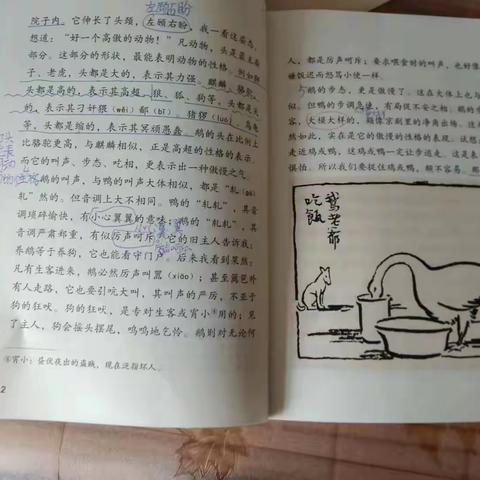 左顾右盼
院子内。它伸长了头颈,左顾右盼,我一看这姿态,
想道:“好一个高傲的动物!”凡动物,头是最主要
部分。这部分的形状,最能表明动物的性格。例如狮
子、老虎,头都是大的,表示其力强。麒麟、骆驼,
头都是高的,表示其高超。狼、狐、狗等,头都是尖
的,表示其刁奸猥(wěi)鄙(bǐ)。猪猡(luó)、乌龟
等,头都是缩的,表示其冥顽愚蠢。鹅的头在比例上
比骆驼更高,与麒麟相似,正是高超的性格的表示。
而它的叫声、步态、吃相,更表示出一种傲慢之气。
鹅的叫声,与鸭的叫声大体相似,都是“轧(gá)
轧”然的。但音调上大不同。鸭的“轧轧”,其音
调琐碎愉快,有小心翼翼的意味;鹅的“轧轧”,其
音调严肃郑重,有似厉声呵斥。它的旧主人告诉我:
养鹅等于养狗,它也能看守门户。后来我看到果然:
凡有生客进来,鹅必然厉声叫嚣(xiāo);甚至篱笆外
有人走路,它也要引吭大叫,其叫声的严厉,不亚于
狗的狂吠。狗的狂吠,是专对生客或宵小④用的;见
了主人,狗会摇头摆尾,呜呜地乞怜。鹅则对无论何
④宵小:昼伏夜出的盗贼,现在泛指坏人。
2
人,都是厉声呵斥;要求喂食时的叫声,也好像
嫌饭迟而怒骂小使一样。
鹅的步态,更是傲慢了。这在大体上也与
似。但鸭的步调急速,有局促不安之相。鹅的步
容,大模大样的,颇像京剧里的净角出场。这
然如此,实在是它的傲慢的性格的表现。这
走近鸡或鸭,这鸡或鸭一定让步逃走。这是表
惧怕。所以我们要捉住鸡或鸭,颇不容易。那
鹅老爷
吃饭